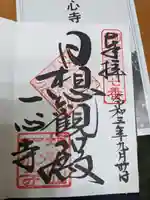 心寺
奉拝
令和三年九月
日想観殿
一心寺